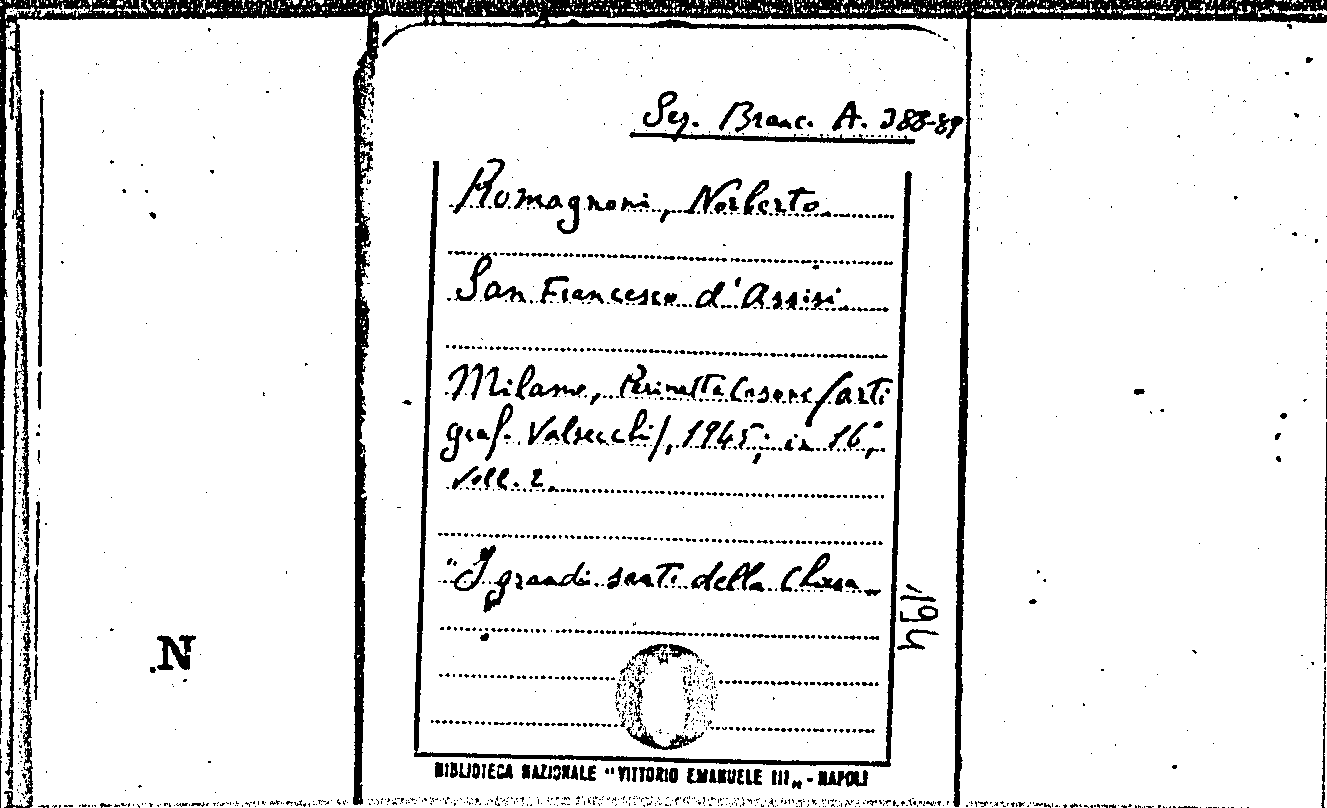 Sez. Branc. A. 388-89
Romagnoni, Norberto
San Francesco d'Assisi
Milano, Perinetti Casoni /arti
graf. Valsecchi/, 1945; in 16°,
voll. 2.
"I grandi santi della Chiesa„
194
N
BIBLIOTECA NAZIONALE "VITTORIO EMANUELE III„ - NAPOLI